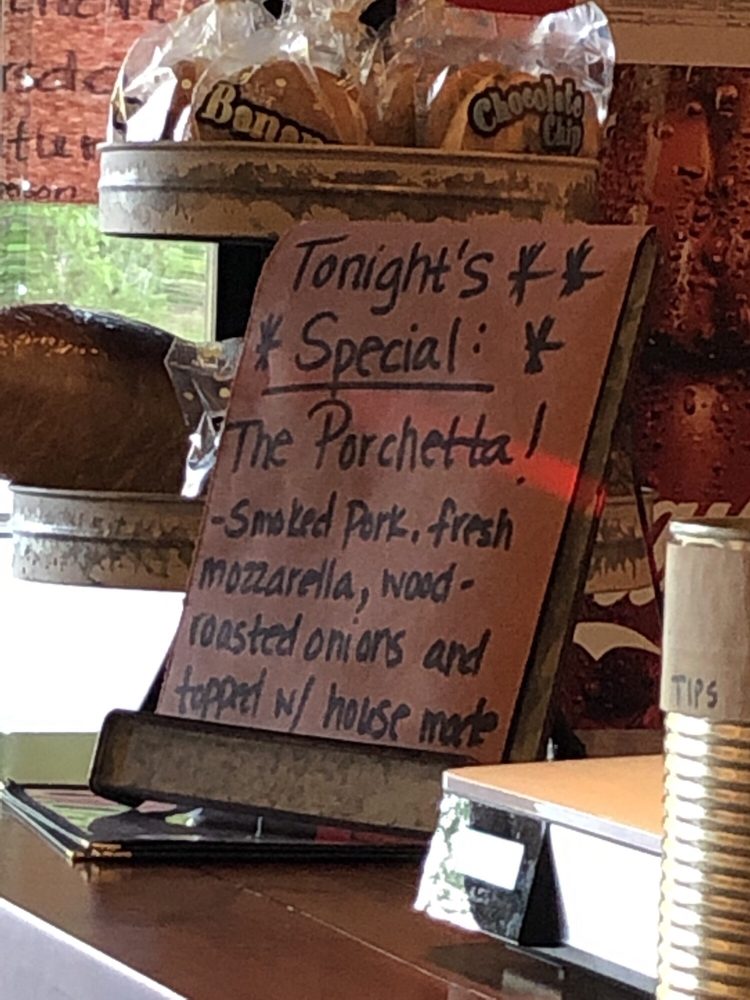 Banana
Chocolate
Chip
Tonight's **
* Special: *
The Porchetta!
-Smoked Pork, fresh
mozzarella, wood-
roasted onions and
topped w/ house made
TIPS